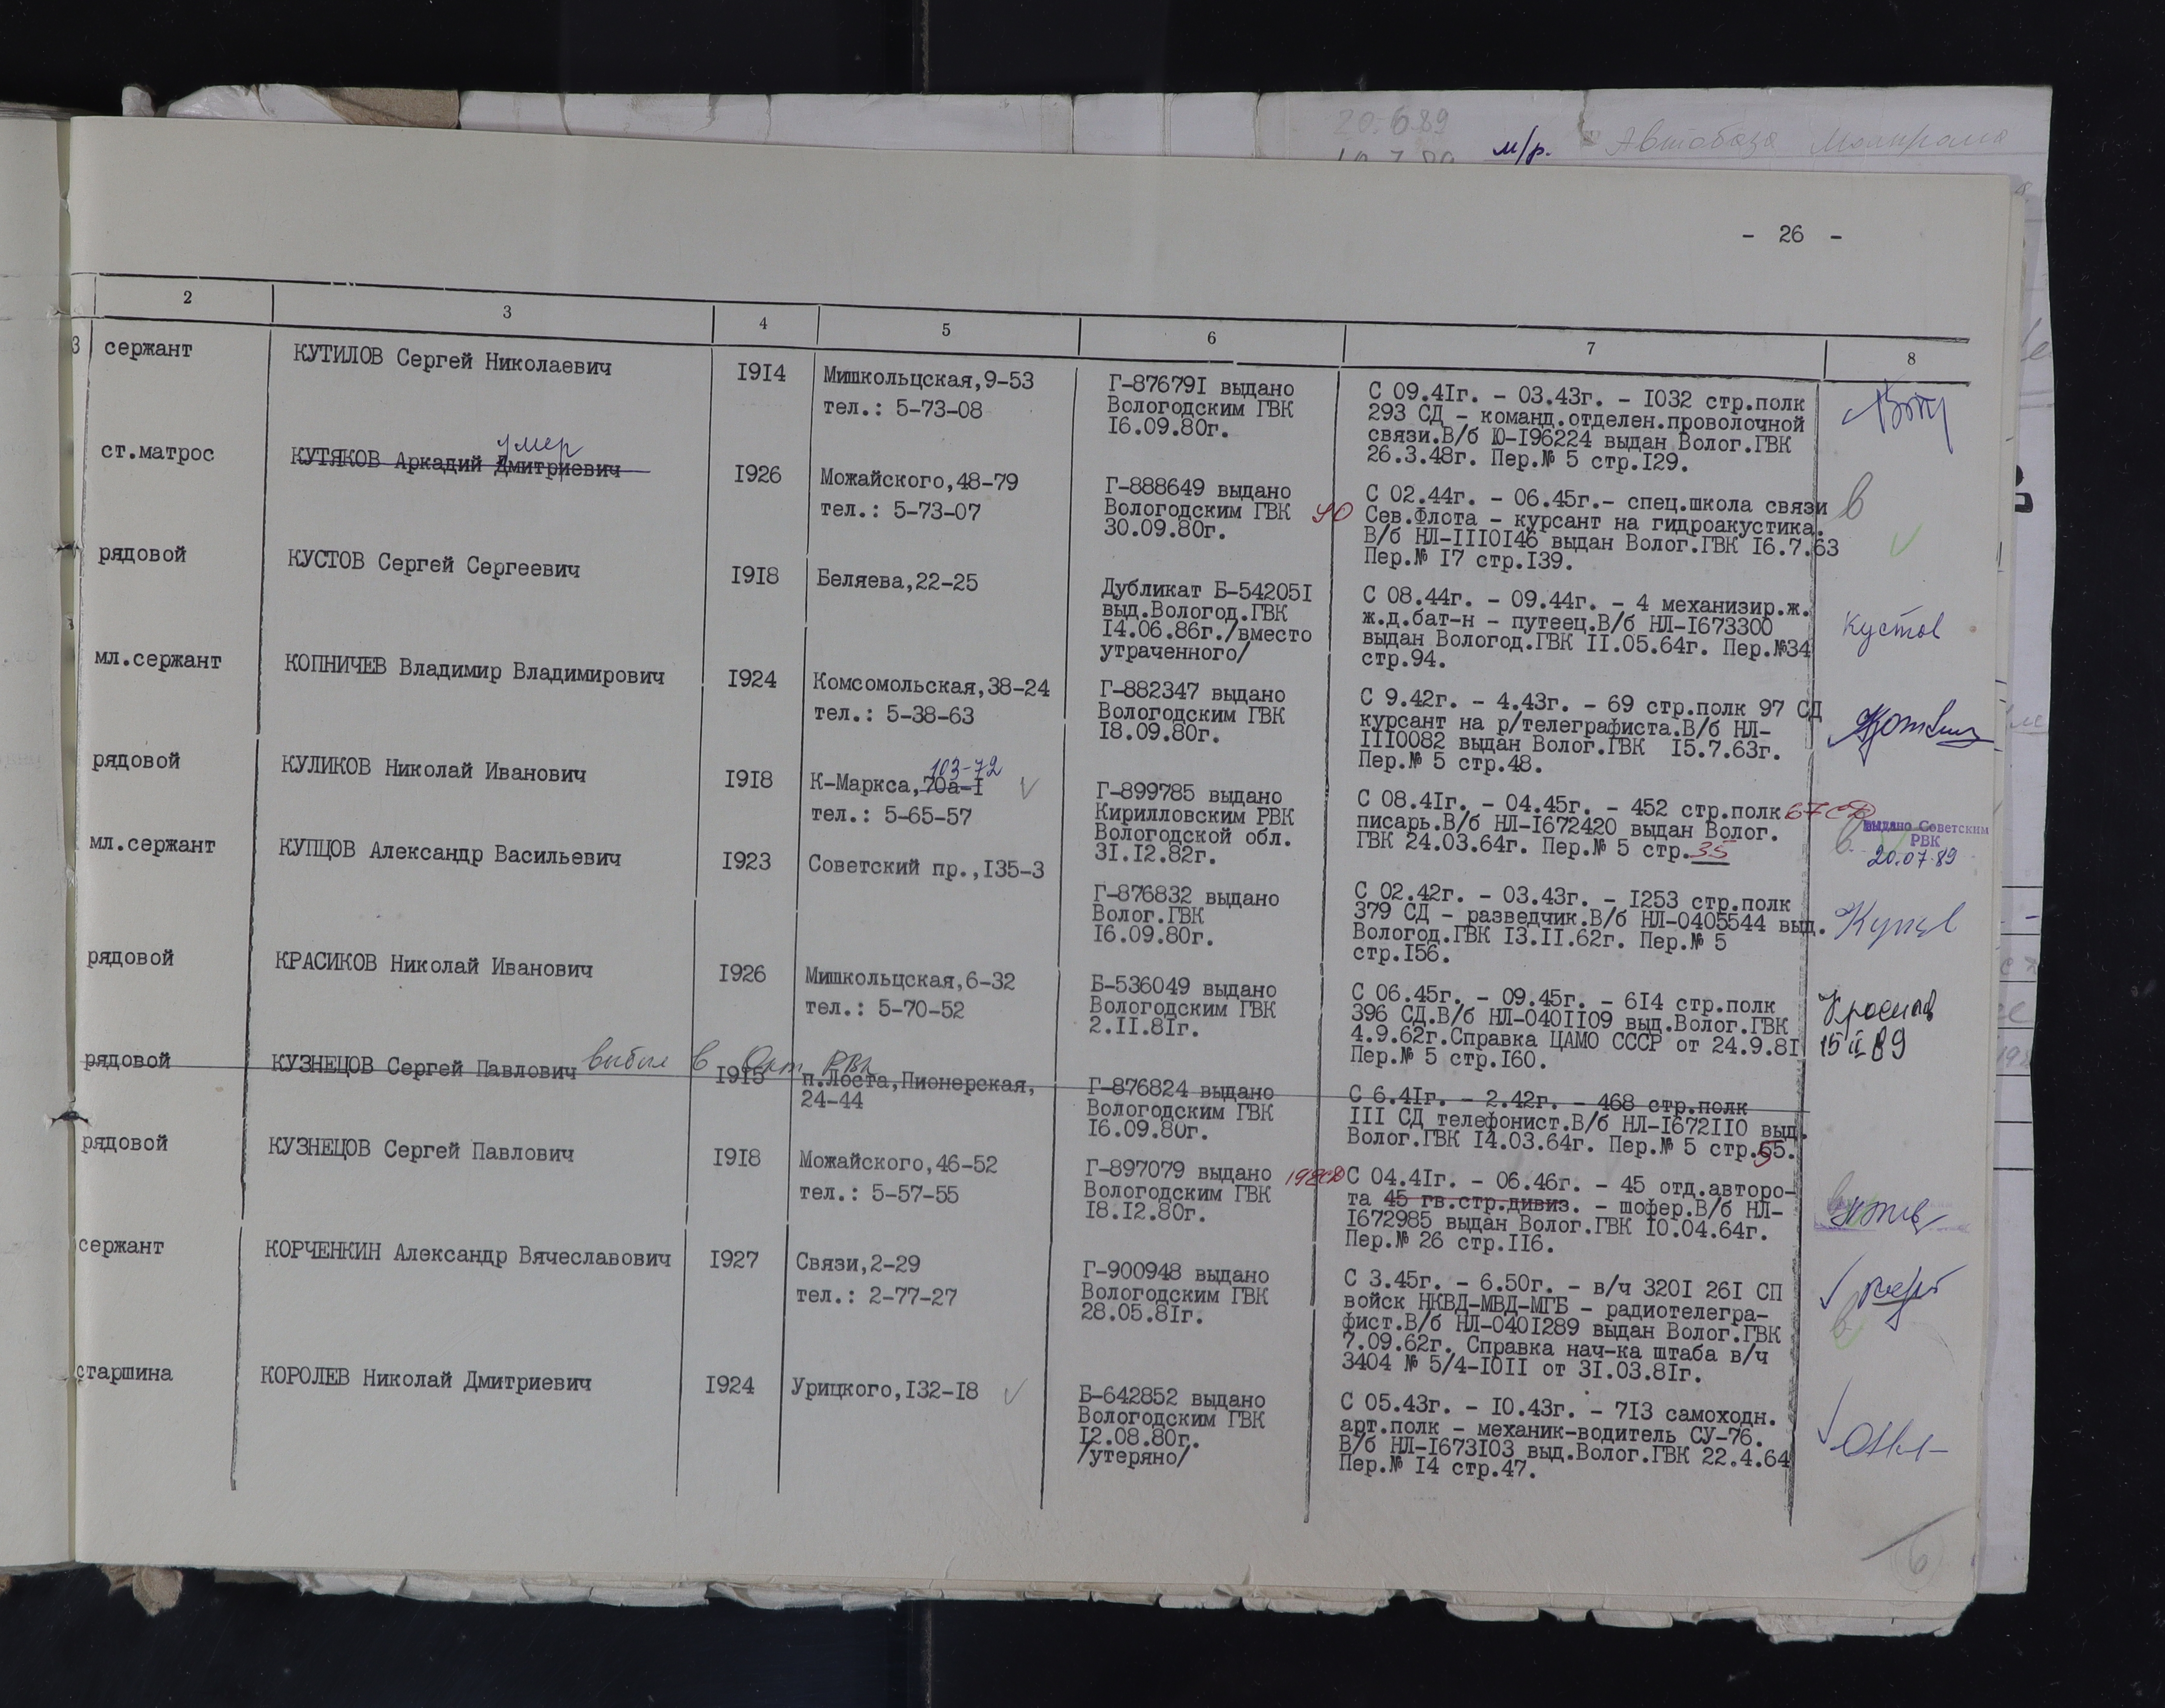 20.6.89
м/р. Автобаза
- 26 -
2 3 4 5 6 7 8
3 сержант
КУТИЛОВ Сергей Николаевич
I9I4
Мишкольцская,9-53
тел.: 5-73-08
Г-87679I выдано
Вологодским ГВК
I6.09.80г.
С 09.4Iг. - 03.43г. - I032 стр.полк
293 СД - команд.отделен.проволочной
связи.В/б Ю-I96224 выдан Волог.ГВК
26.3.48г. Пер.№ 5 стр.I29.
ст.матрос
умер
КУТЯКОВ Аркадий Дмитриевич
I926
Можайского,48-79
тел.: 5-73-07
Г-888649 выдано
Вологодским ГВК
30.09.80г.
УО
С 02.44г. - 06.45г.- спец.школа связи
Сев.Флота - курсант на гидроакустика.
В/б НЛ-IIIOI46 выдан Волог.ГВК I6.7.63
Пер.№ I7 стр.I39.
в
рядовой
КУСТОВ Сергей Сергеевич
I9I8
Беляева,22-25
Дубликат Б-54205I
выд.Вологод.ГВК
I4.06.86г./вместо
утраченного/
С 08.44г. - 09.44г. - 4 механизир.ж.
ж.д.бат-н - путеец.В/б НЛ-I673300
выдан Вологод.ГВК II.05.64г. Пер.№34
стр.94.
Кустов
мл.сержант
КОПНИЧЕВ Владимир Владимирович
I924
Комсомольская,38-24
тел.: 5-38-63
Г-882347 выдано
Вологодским ГВК
I8.09.80г.
С 9.42г. - 4.43г. - 69 стр.полк 97 СД
курсант на р/телеграфиста.В/б НЛ-
III0082 выдан Волог.ГВК I5.7.63г.
Пер.№ 5 стр.48.
рядовой
КУЛИКОВ Николай Иванович
I9I8
103-72
К-Маркса,70а-I
тел.: 5-65-57
Г-899785 выдано
Кирилловским РВК
Вологодской обл.
3I.I2.82г.
С 08.4Iг. - 04.45г. - 452 стр.полк 67 СД
писарь.В/б НЛ-I672420 выдан Волог.
ГВК 24.03.64г. Пер.№ 5 стр.35
выдано Советским
РВК
20.07.89
в
мл.сержант
КУПЦОВ Александр Васильевич
I923
Советский пр.,I35-3
Г-876832 выдано
Волог.ГВК
I6.09.80г.
С 02.42г. - 03.43г. - I253 стр.полк
379 СД - разведчик.В/б НЛ-0405544 выд.
Вологод.ГВК I3.II.62г. Пер.№ 5
стр.I56.
рядовой
КРАСИКОВ Николай Иванович
I926
Мишкольцская,6-32
тел.: 5-70-52
Б-536049 выдано
Вологодским ГВК
2.II.8Iг.
С 06.45г. - 09.45г. - 6I4 стр.полк
396 СД.В/б НЛ-040II09 выд.Волог.ГВК
4.9.62г.Справка ЦАМО СССР от 24.9.8I
Пер.№ 5 стр.I60.
15 II 89
рядовой
КУЗНЕЦОВ Сергей Павлович выбыл в Окт РВК
I9I5
п.Лоста,Пионерская,
24-44
Г-876824 выдано
Вологодским ГВК
I6.09.80г.
С 6.4Iг. - 2.42г. - 468 стр.полк
III СД телефонист.В/б НЛ-I672II0 выд.
Волог.ГВК I4.03.64г. Пер.№ 5 стр.55.
рядовой
КУЗНЕЦОВ Сергей Павлович
I9I8
Можайского,46-52
тел.: 5-57-55
Г-897079 выдано
Вологодским ГВК
I8.I2.80г.
198СД
С 04.4Iг. - 06.46г. - 45 отд.авторо-
та 45 гв.стр.дивиз. - шофер.В/б НЛ-
I672985 выдан Волог.ГВК I0.04.64г.
Пер.№ 26 стр.II6.
сержант
КОРЧЕНКИН Александр Вячеславович
I927
Связи,2-29
тел.: 2-77-27
Г-900948 выдано
Вологодским ГВК
28.05.8Iг.
С 3.45г. - 6.50г. - в/ч 320I 26I СП
войск НКВД-МВД-МГБ - радиотелегра-
фист.В/б НЛ-040I289 выдан Волог.ГВК
7.09.62г. Справка нач-ка штаба в/ч
3404 № 5/4-I0II от 3I.03.8Iг.
в
старшина
КОРОЛЕВ Николай Дмитриевич
I924
Урицкого,I32-I8
Б-642852 выдано
Вологодским ГВК
I2.08.80г.
/утеряно/
С 05.43г. - I0.43г. - 7I3 самоходн.
арт.полк - механик-водитель СУ-76.
В/б НЛ-I673I03 выд.Волог.ГВК 22.4.64
Пер.№ I4 стр.47.
6